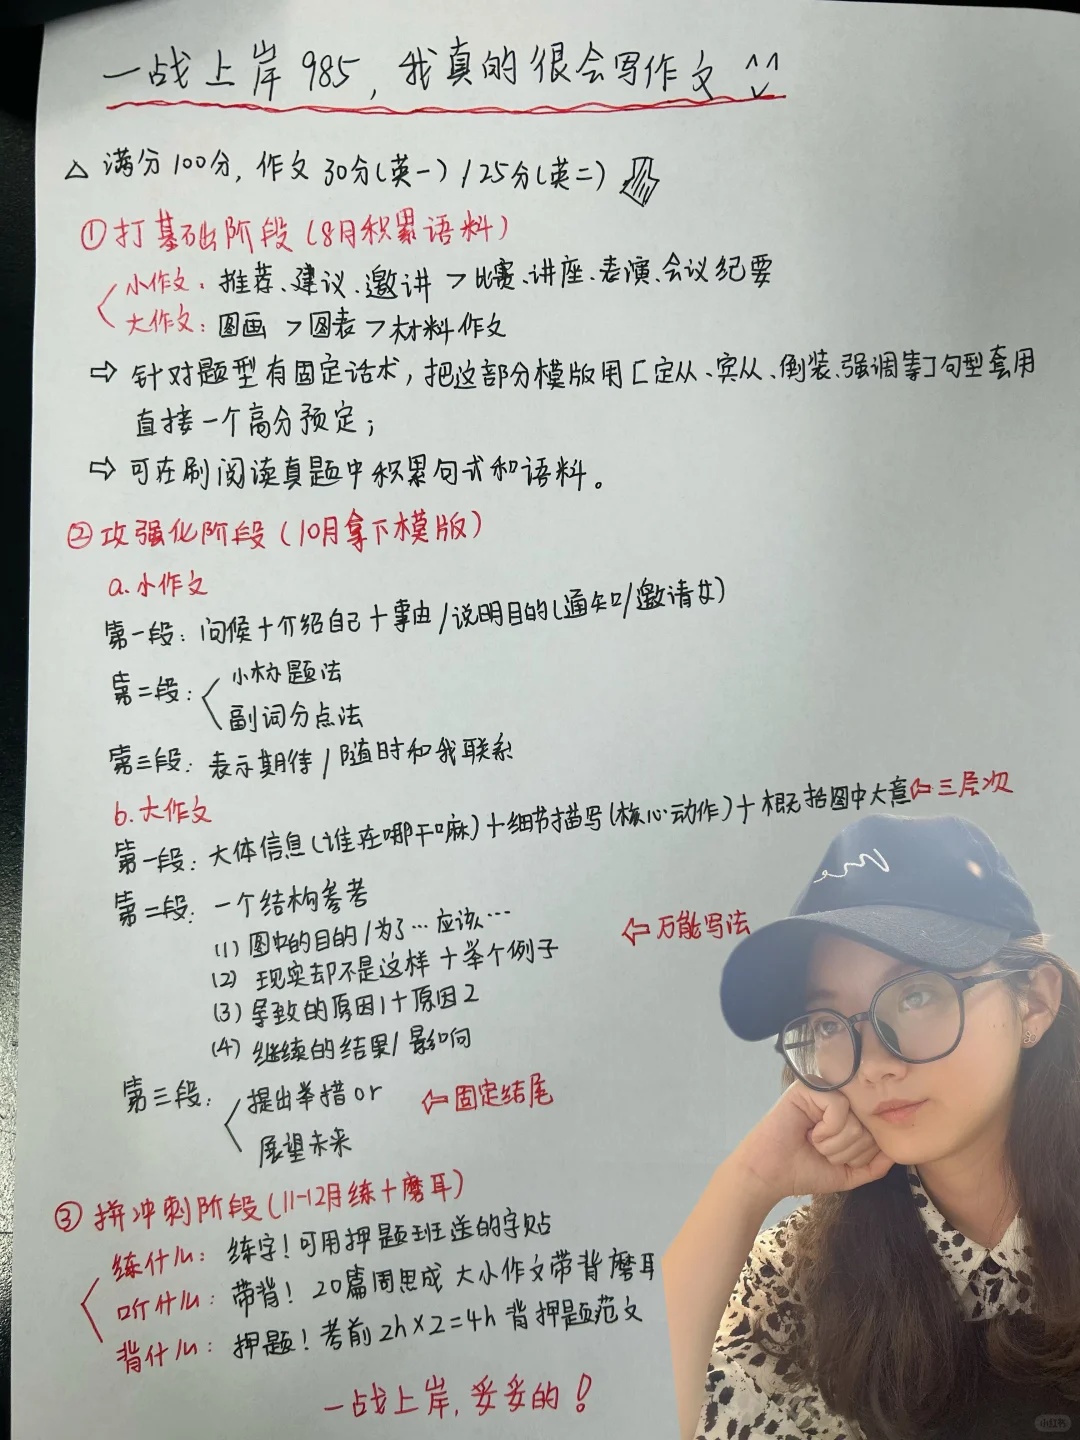 一战上岸985,我真的很会写作文
△ 满分100分,作文30分(英一)/25分(英二)
①打基础阶段(8月积累语料)
小作文:推荐、建议、邀讲>比赛、讲座、表演、会议纪要
大作文:图画>图表>材料作文
⇨ 针对题型有固定话术,把这部分模版用[定从、宾从、倒装、强调等]句型套用
直接一个高分预定;
⇨ 可在刷阅读真题中积累句式和语料。
②攻强化阶段(10月拿下模版)
a.小作文
第一段:问候+介绍自己+事由/说明目的(通知/邀请女)
第二段:小标题法
副词分点法
第三段:表示期待/随时和我联系
b.大作文
第一段:大体信息(谁在哪干嘛)+细节描写(核心动作)+概括图中大意⇦三层次
第二段:一个结构参考
(1)图中的目的/为了…应该…
⇦万能写法
(2)现实却不是这样+举个例子
(3)导致的原因1+原因2
(4)继续的结果/影响
第三段:提出举措or
⇦固定结尾
展望未来
③拼冲刺阶段(11-12月练+磨耳)
练什么:练字!可用押题班送的字贴
听什么:带背!20篇周思成大小作文带背磨耳
背什么:押题!考前2h×2=4h背押题范文
一战上岸,妥妥的!
me
小红书